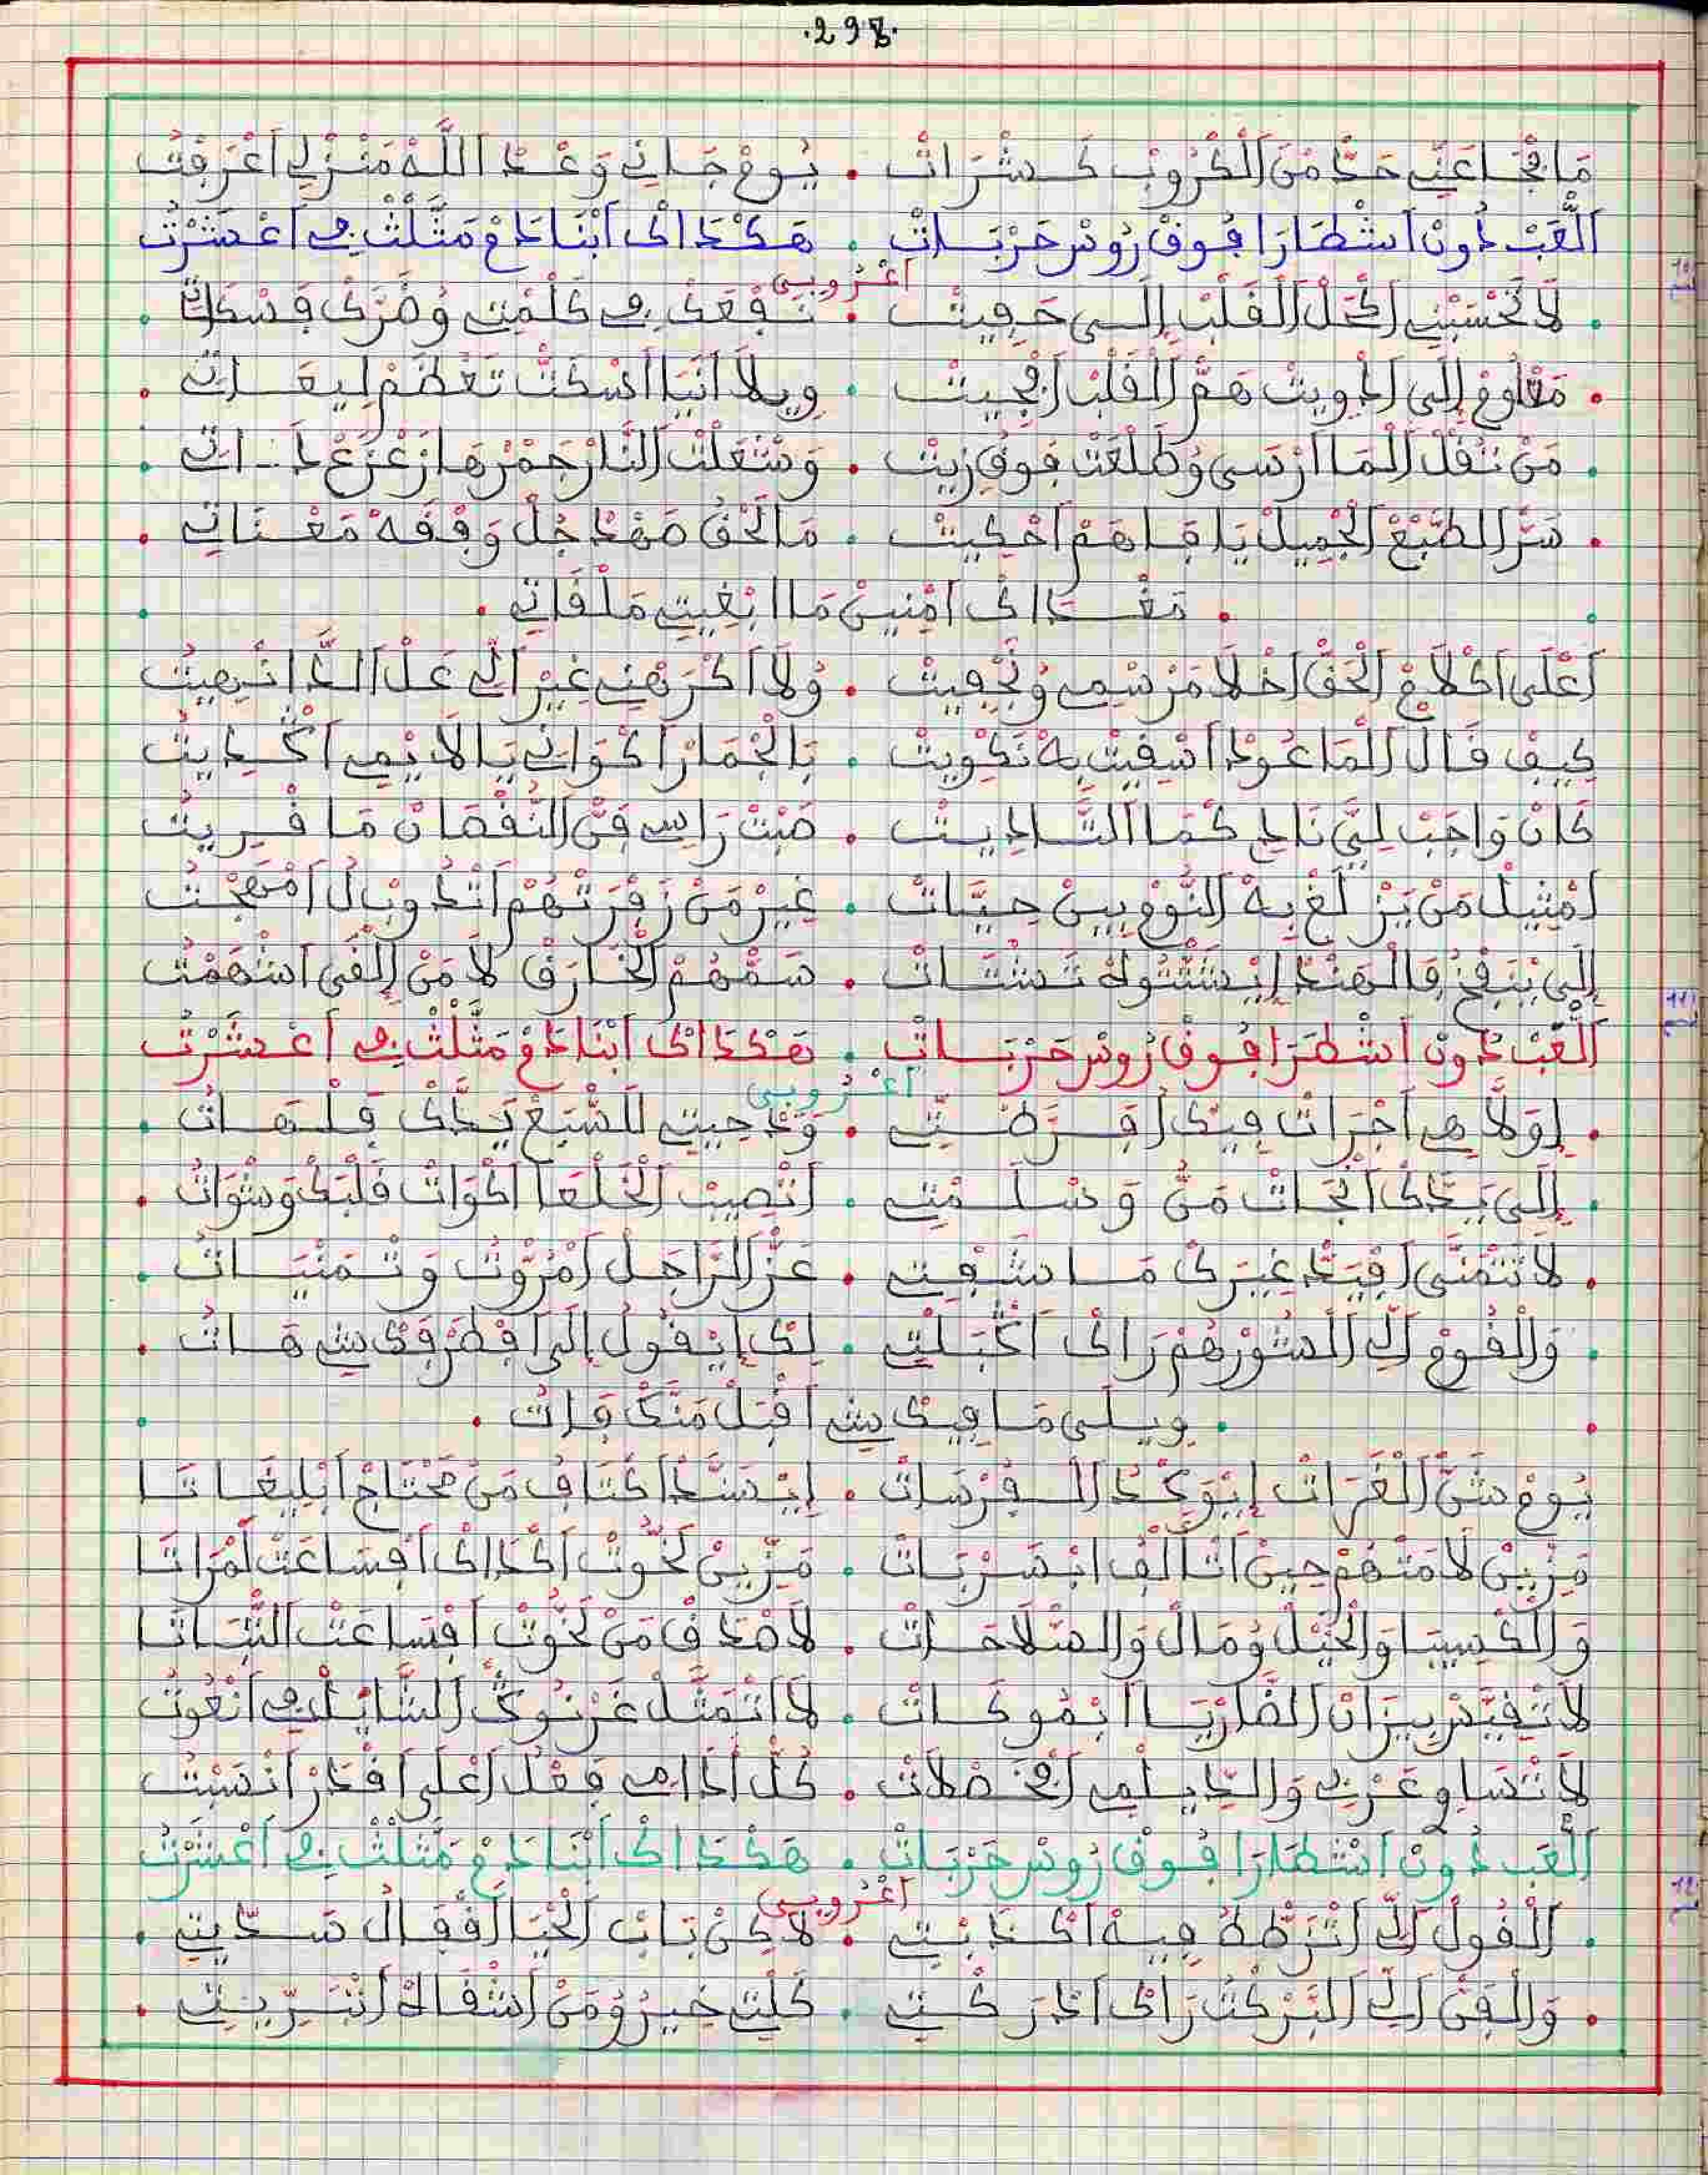 .298.
مَا نْجَا عَنِّي حَدّْ مْنَ الْكْرُوبْ كَشْرَاتْ . يُومْ جَانِي وَعْدْ اللَّهْ مَنْزْلِي اعْرَفْتُ
اَلْعَبْ دُونْ اشْطَارَا فُوقْ رُوسْ حَرْبَاتْ . هَكْدَاكْ ابْنَادَمْ مَثَّلْتْ فِي اعْشَرْتُ
اعْرُوبِي
. لَا تْحَسْبْنِي الْقَلْبْ إِلَى حْفِيتْ . نَفْعَكْ فِي كَلْمْتِي وُضَرَّكْ فَسْكَاتِي .
. مَعْلُومْ إِلَى ادْوِيتْ هَمّْ الْقَلْبْ افْجِيتْ . وِيلَا انَيَا اسْكَتّْ تَعْظَمْ لِيعَاتِي .
. مَنْ تُقْلْ الْمَا ارْسَى وُطَلْعَتْ فُوقْ زِيتْ . وَشْعَلْتْ النَّارْ جَمْرْهَا زَعْزَعْ دَاتِي .
. سَرّْ الطَّبْعْ الْجْمِيلْ يَا فَاهَمْ احْكِيتْ . مَالْحَقْ صَهْدْ جُلّْ وَقْفَهْ مَعْنَاتِي .
. مَعْدَاكْ امْنِينْ مَا ابْغِيتِي مَلْقَاتِي .
اعْلَى اكْلَامْ الْحَقّْ اخْلَا مَرْسْمِي وُنْجْفِيتْ . وُلَا اكْرَهْنِي غِيرْ الِّي عَلْ الدَّا انْهِيتُ
كِيفْ قَالْ الْمَا عُودْ اسْقِيتْ بِهْ نَكْوِيتْ . بَالْجْمَارْ اكْوَانِي يَا لَايْمِي اكْدِيتُ
كَانْ وَاجَبْ لِيَّ نَادِي كْمَا اتَّادِيتْ . صَبْتْ رَاسِي فَنّْ النُّقْصَانْ مَا قْرِيتُ
امْثِيلْ مَنْ يَزْلَغْ بِهْ النُّومْ بِينْ حِيَّاتْ . غِيرْ مَنْ زَفْرَتْهُمْ اتْدُوبْ لُ امْهَجْتُ
إِلَى يَنْفْخُ فَالْهَنْدْ إِيشَتّْتُوهْ تَشْتَاتْ . سَمّْهُمْ الْخَارَقْ لَا مَنْ إِلْقَى اسْهَمْتُ
اَلْعَبْ دُونْ اشْطَرَا فُوقْ رُوسْ حَرْبَاتْ . هَكْدَاكْ ابْنَادَمْ مَثَّلْتْ فِي اعْشَرْتُ
اعْرُوبِي
. لَوْلَا هِي اجْرَاتْ فِيكْ افَرَّطْتِي . وَعْدْ جِيتِي للسّْبَعْ يَدَّكْ فَلْهَاتُ .
. إِلَى يَدَّكْ انْجَاتْ مَنُّ وَسْلَمْتِي . اتْصِيبْ الْخَلْعَا اكْوَاتْ قَلْبَكْ وَشْوَاتُ .
. لَا تَتْمَنَّى افْيَدْ غِيرَكْ مَا شَفْتِي . عَزّْ الرَّاجَلْ امْرُوّْتُ وَتْمَنْيَاتُ .
. وَالْقُومْ الِّي الْسُورْهُمْ رَاكْ اكْبَلْتِي . لَكْ إِيقُولُ إِلَى افْطَرْفَكْ شِي هَاتُ .
. وِيلَى مَا فِيكْ شِي اقْبَلْ مَنَّكْ فَاتُ .
يُومْ شَنّْ الْغَرَاتْ إِيْوَكْدْ الْفُرْسَاتْ . إِيْسَنَّدْ اكْتَافُ مَنْ مَحْتَاجْ ابْلِيغَاتَا
مَزْيِنْ لَامَتْهُمْ حِينْ اتَّالَفْ ابْسَرْبَاتْ . مَزْيِنْ لَخُّوتْ اكْدَاكْ افْسَاعَتْ لَمْرَاتَا
وَالْكْسِيبَا وَالْخَيْلْ وُمَالْ وَالسّْلَاحَاتْ . لَاصْدَقْ مَنْ لَخُّوتْ افْسَاعَتْ التّْبَاتَا
لَا تْفَيَّسْ بِيزَانْ الضَّارْيَا ابْمُوكَاتْ . لَا اتْمَثَّلْ غَرْنُوكْ الشَّايْلْ فِي انْعُوتُ
لَا تْسَاوِي عَرْبِي وَالدِّيلْمِي افْخَصْلَاتْ . كُلّْ ادَامِي فَعْلُ اعْلَى اقْدَرْ انْسَبْتُ
اَلْعَبْ دُونْ اشْطَارَا فُوقْ رُوسْ حَرْبَاتْ . هَكْدَاكْ ابْنَادَمْ مَثَّلْتْ فِي اعْشَرْتُ
اعْرُوبِي
. اَلْقُولْ الِّ اتْرَطّهْ فِيهْ اكْدَبْتِي . لَاكِنْ بَابْ الْحْيَا الْقْفَالُ سَدِّيتِي .
. وَالْفَنّْ الِّي الْبَرْكْتُ رَاكْ ادْرَكْتِي . كَلْتِي خِيرُ وُمَنْ اشْقَاهْ اتْبَرِّيتِي .